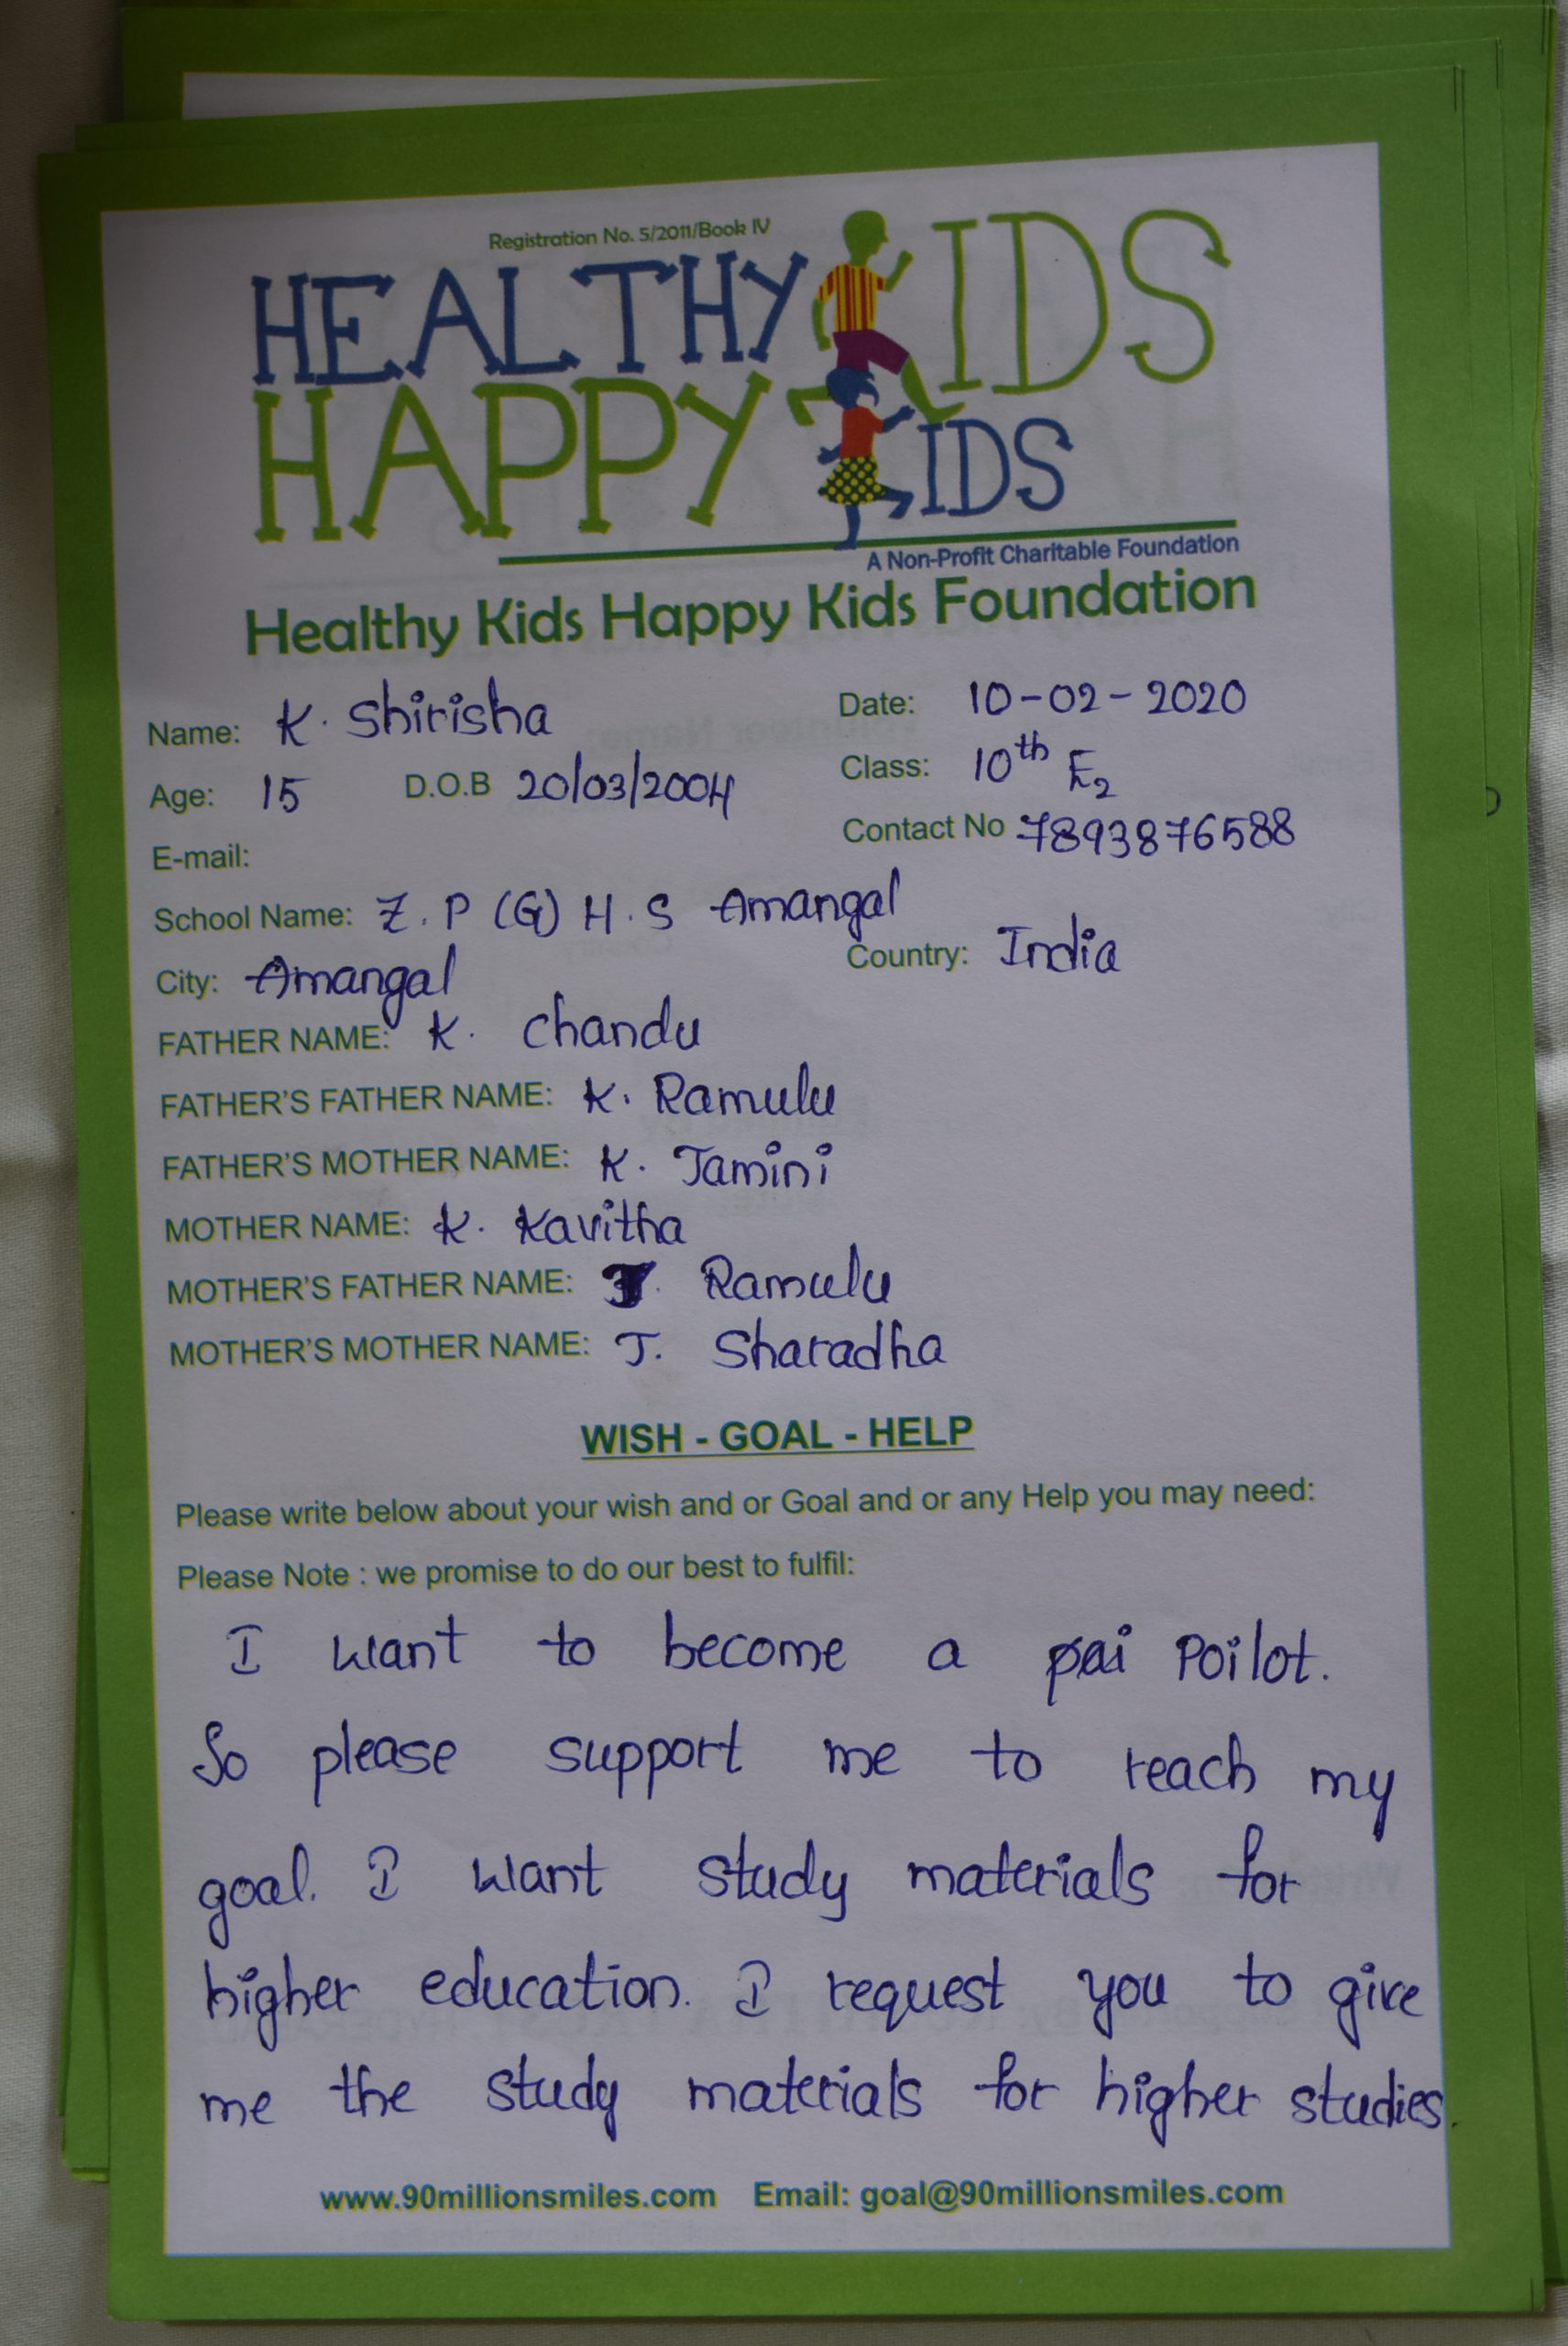 Registration No. 5/2011/Book IV
HEALTHY KIDS
HAPPY KIDS
A Non-Profit Charitable Foundation
Healthy Kids Happy Kids Foundation
Name: K. Shirisha Date: 10-02-2020
Age: 15 D.O.B 20/03/2004 Class: 10th E2
E-mail: Contact No 7893876588
School Name: Z.P (G) H.S Amangal
City: Amangal Country: India
FATHER NAME: K. Chandu
FATHER'S FATHER NAME: K. Ramulu
FATHER'S MOTHER NAME: K. Jamini
MOTHER NAME: K. Kavitha
MOTHER'S FATHER NAME: J. Ramulu
MOTHER'S MOTHER NAME: J. Sharadha
WISH - GOAL - HELP
Please write below about your wish and or Goal and or any Help you may need:
Please Note : we promise to do our best to fulfil:
I want to become a pai Poilot.
So please support me to reach my
goal. I want study materials for
higher education. I request you to give
me the study materials for higher studies.
www.90millionsmiles.com Email: goal@90millionsmiles.com